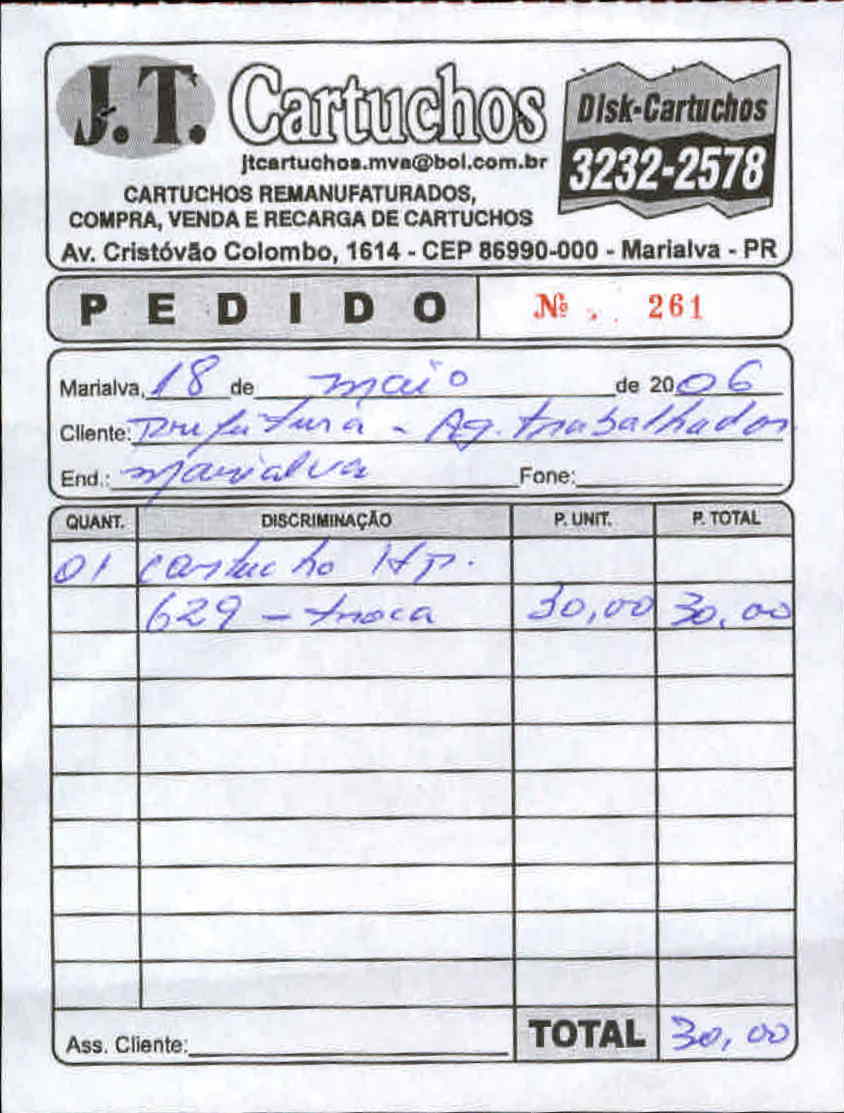 J.T. Cartuchos
Disk-Cartuchos
3232-2578
jtcartuchos.mva@bol.com.br
CARTUCHOS REMANUFATURADOS,
COMPRA, VENDA E RECARGA DE CARTUCHOS
Av. Cristóvão Colombo, 1614 - CEP 86990-000 - Marialva - PR
PEDIDO Nº 261
Marialva, 18 de maio de 2006
Cliente: Prefeitura - Ag. trabalhador
End.: marialva Fone:
QUANT. DISCRIMINAÇÃO P. UNIT. P. TOTAL
01 cartucho Hp.
629 - troca 30,00 30,00
Ass. Cliente: TOTAL 30,00